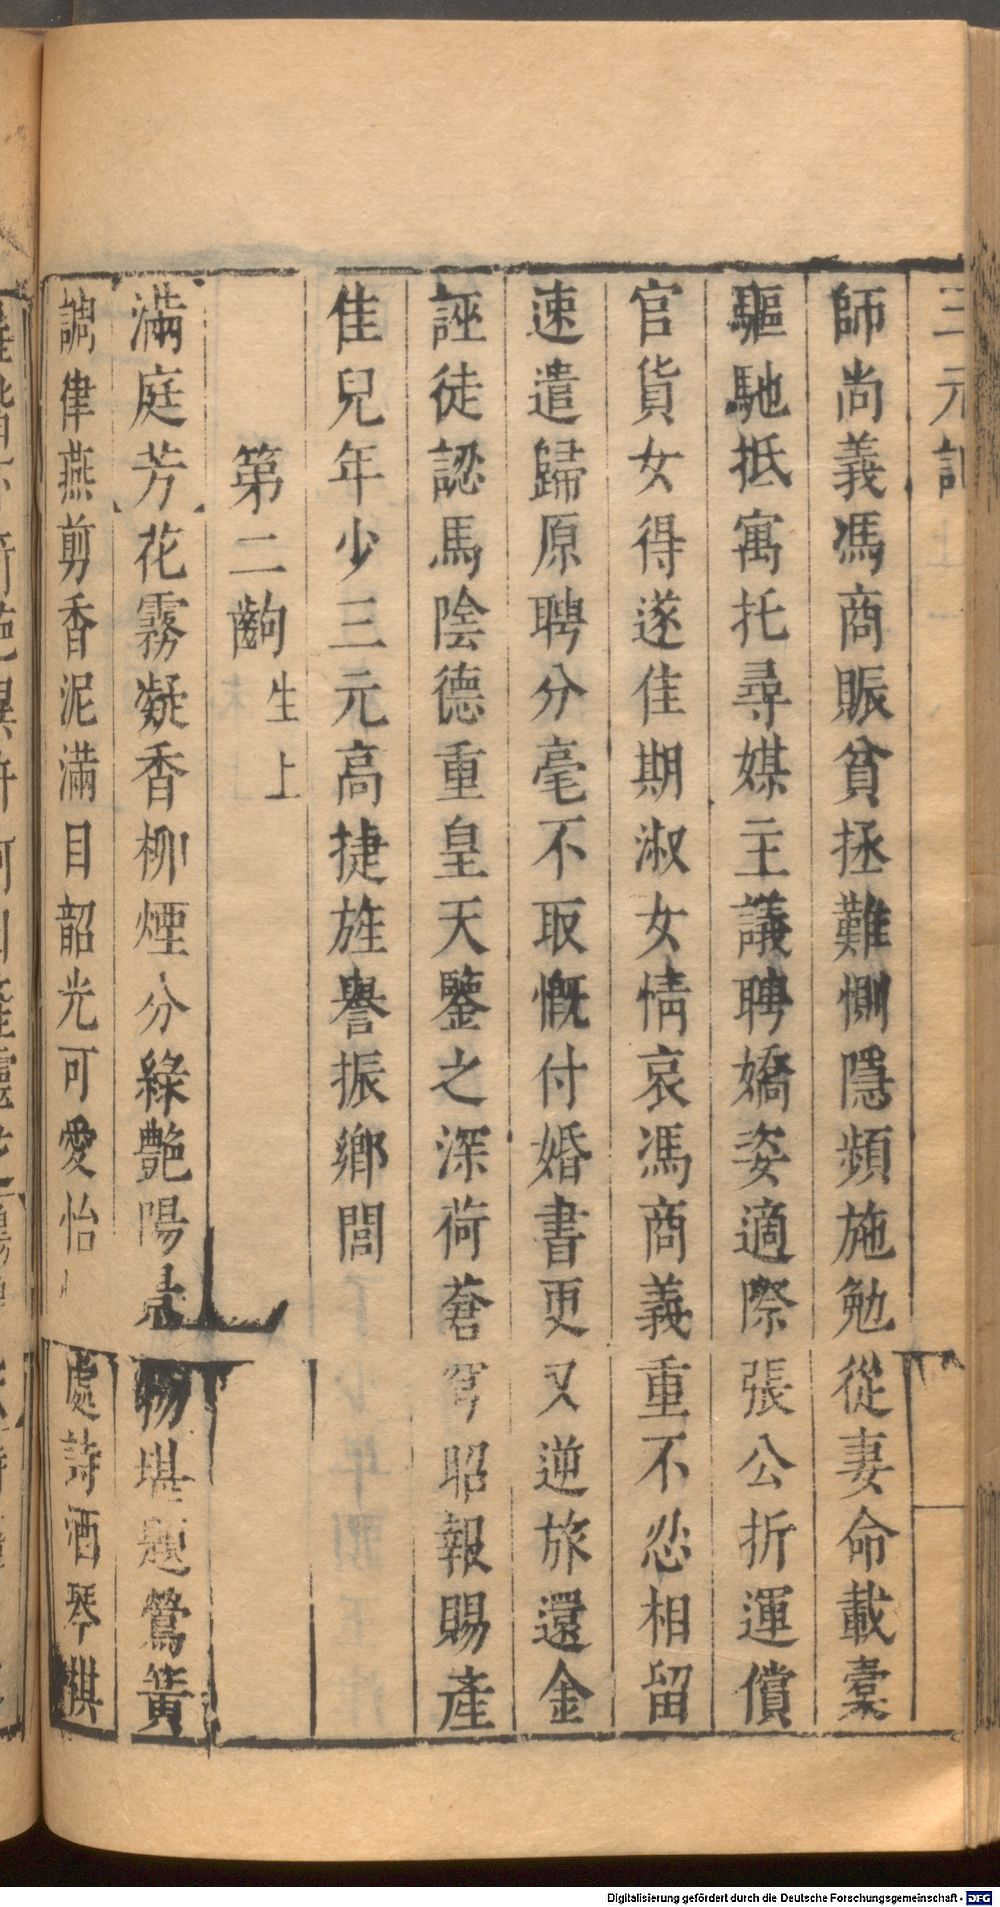 三元記
師尚義馮商賑貧拯難惻隱頻施勉從妻命載橐
驅馳抵寓托尋媒主議聘嬌姿適際張公折運償
官貨女得遂佳期淑女情哀馮商義重不忍相留
速遣歸原聘分毫不取慨付婚書更又逆旅還金
誣徒認馬陰德重皇天鑒之深荷蒼穹昭報賜產
佳兒年少三元高捷旌譽振鄉閭
第二齣 生上
滿庭芳花霧凝香柳煙分綠艷陽景物堪題鶯簧
調律燕剪香泥滿目韶光可愛怡處詩酒琴棋
Digitalisierung gefördert durch die Deutsche Forschungsgemeinschaft - DFG